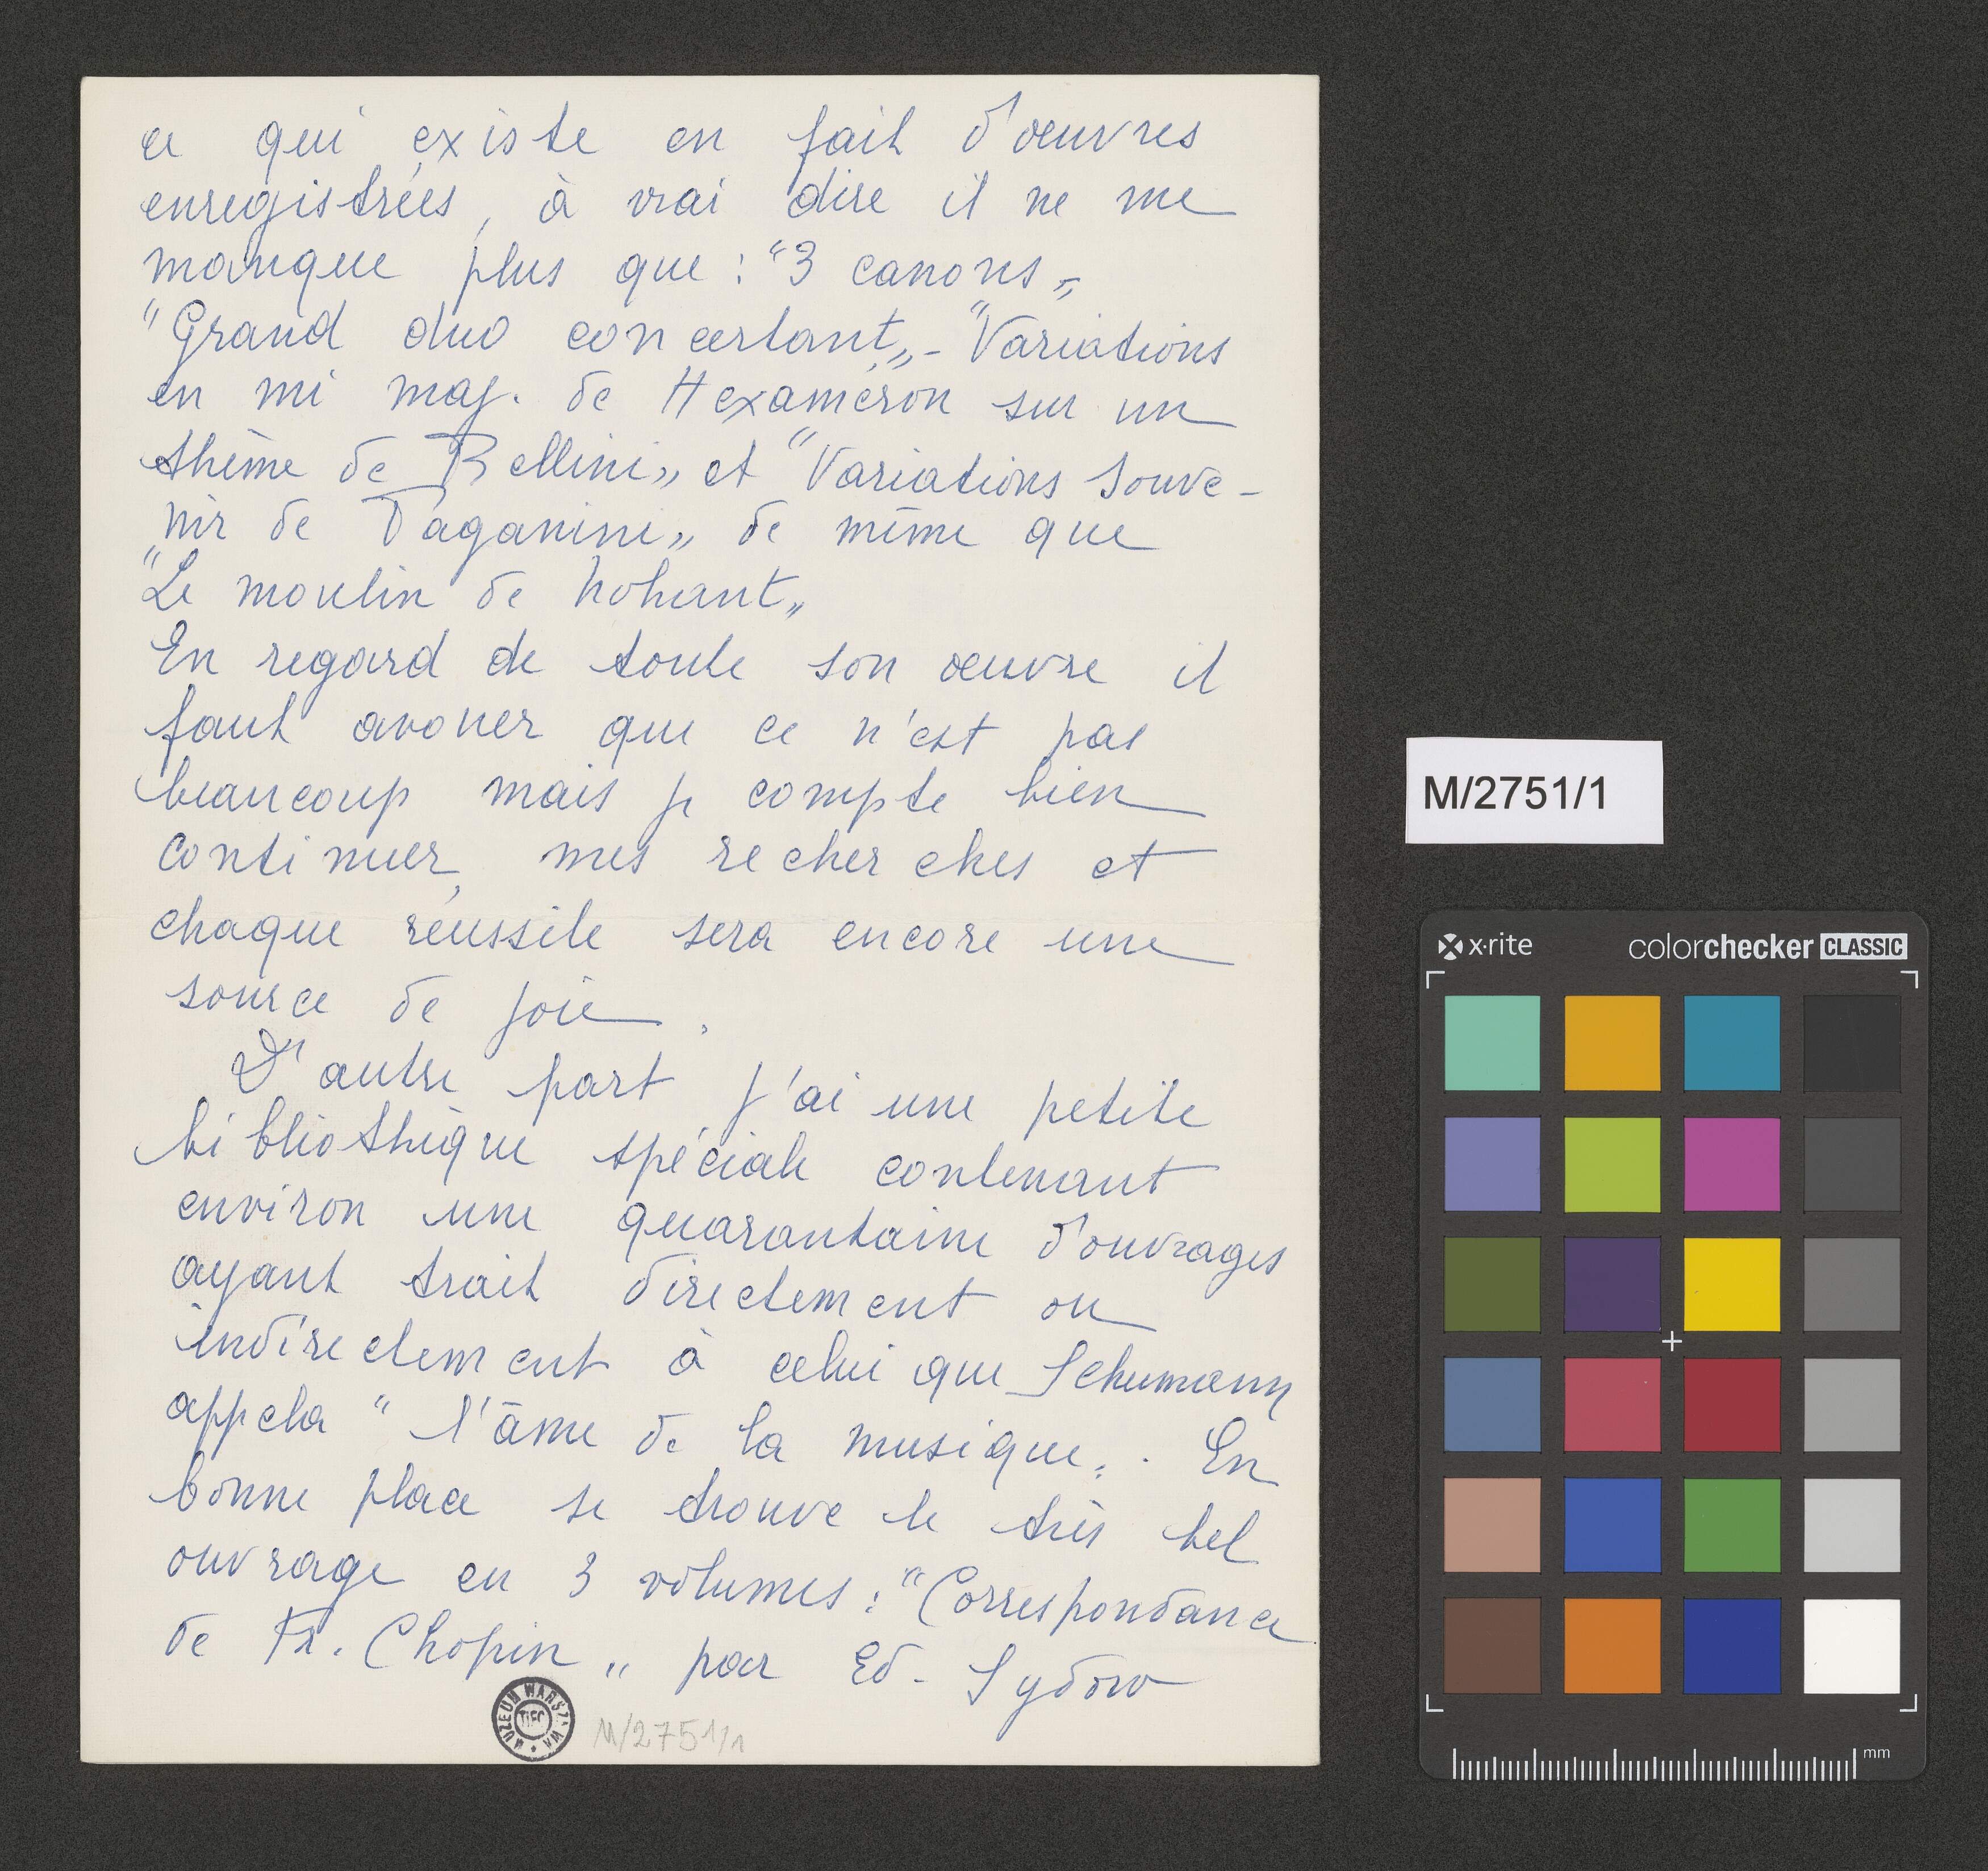 ce qui existe en fait d'oeuvres
enregistrées, à vrai dire il ne me
manque plus que : "3 canons„
"Grand duo concertant„ - "Variations
en mi maj. de Hexaméron sur un
thème de Bellini„ et "Variations Souve-
nir de Paganini„ de même que
"Le moulin de Nohant„
En regard de toute son oeuvre il
faut avouer que ce n'est pas
beaucoup mais je compte bien
continuer mes recherches et
chaque réussite sera encore une
source de joie.
D'autre part j'ai une petite
bibliothèque spéciale contenant
environ une quarantaine d'ouvrages
ayant trait directement ou
indirectement à celui que Schumann
appela "l'âme de la musique„. En
bonne place se trouve le très bel
ouvrage en 3 volumes : "Correspondance
de Fr. Chopin„ par Ed. Sydow
MUZEUM WARSZAWA TIFC
M/2751/1
M/2751/1
x·rite colorchecker CLASSIC
mm